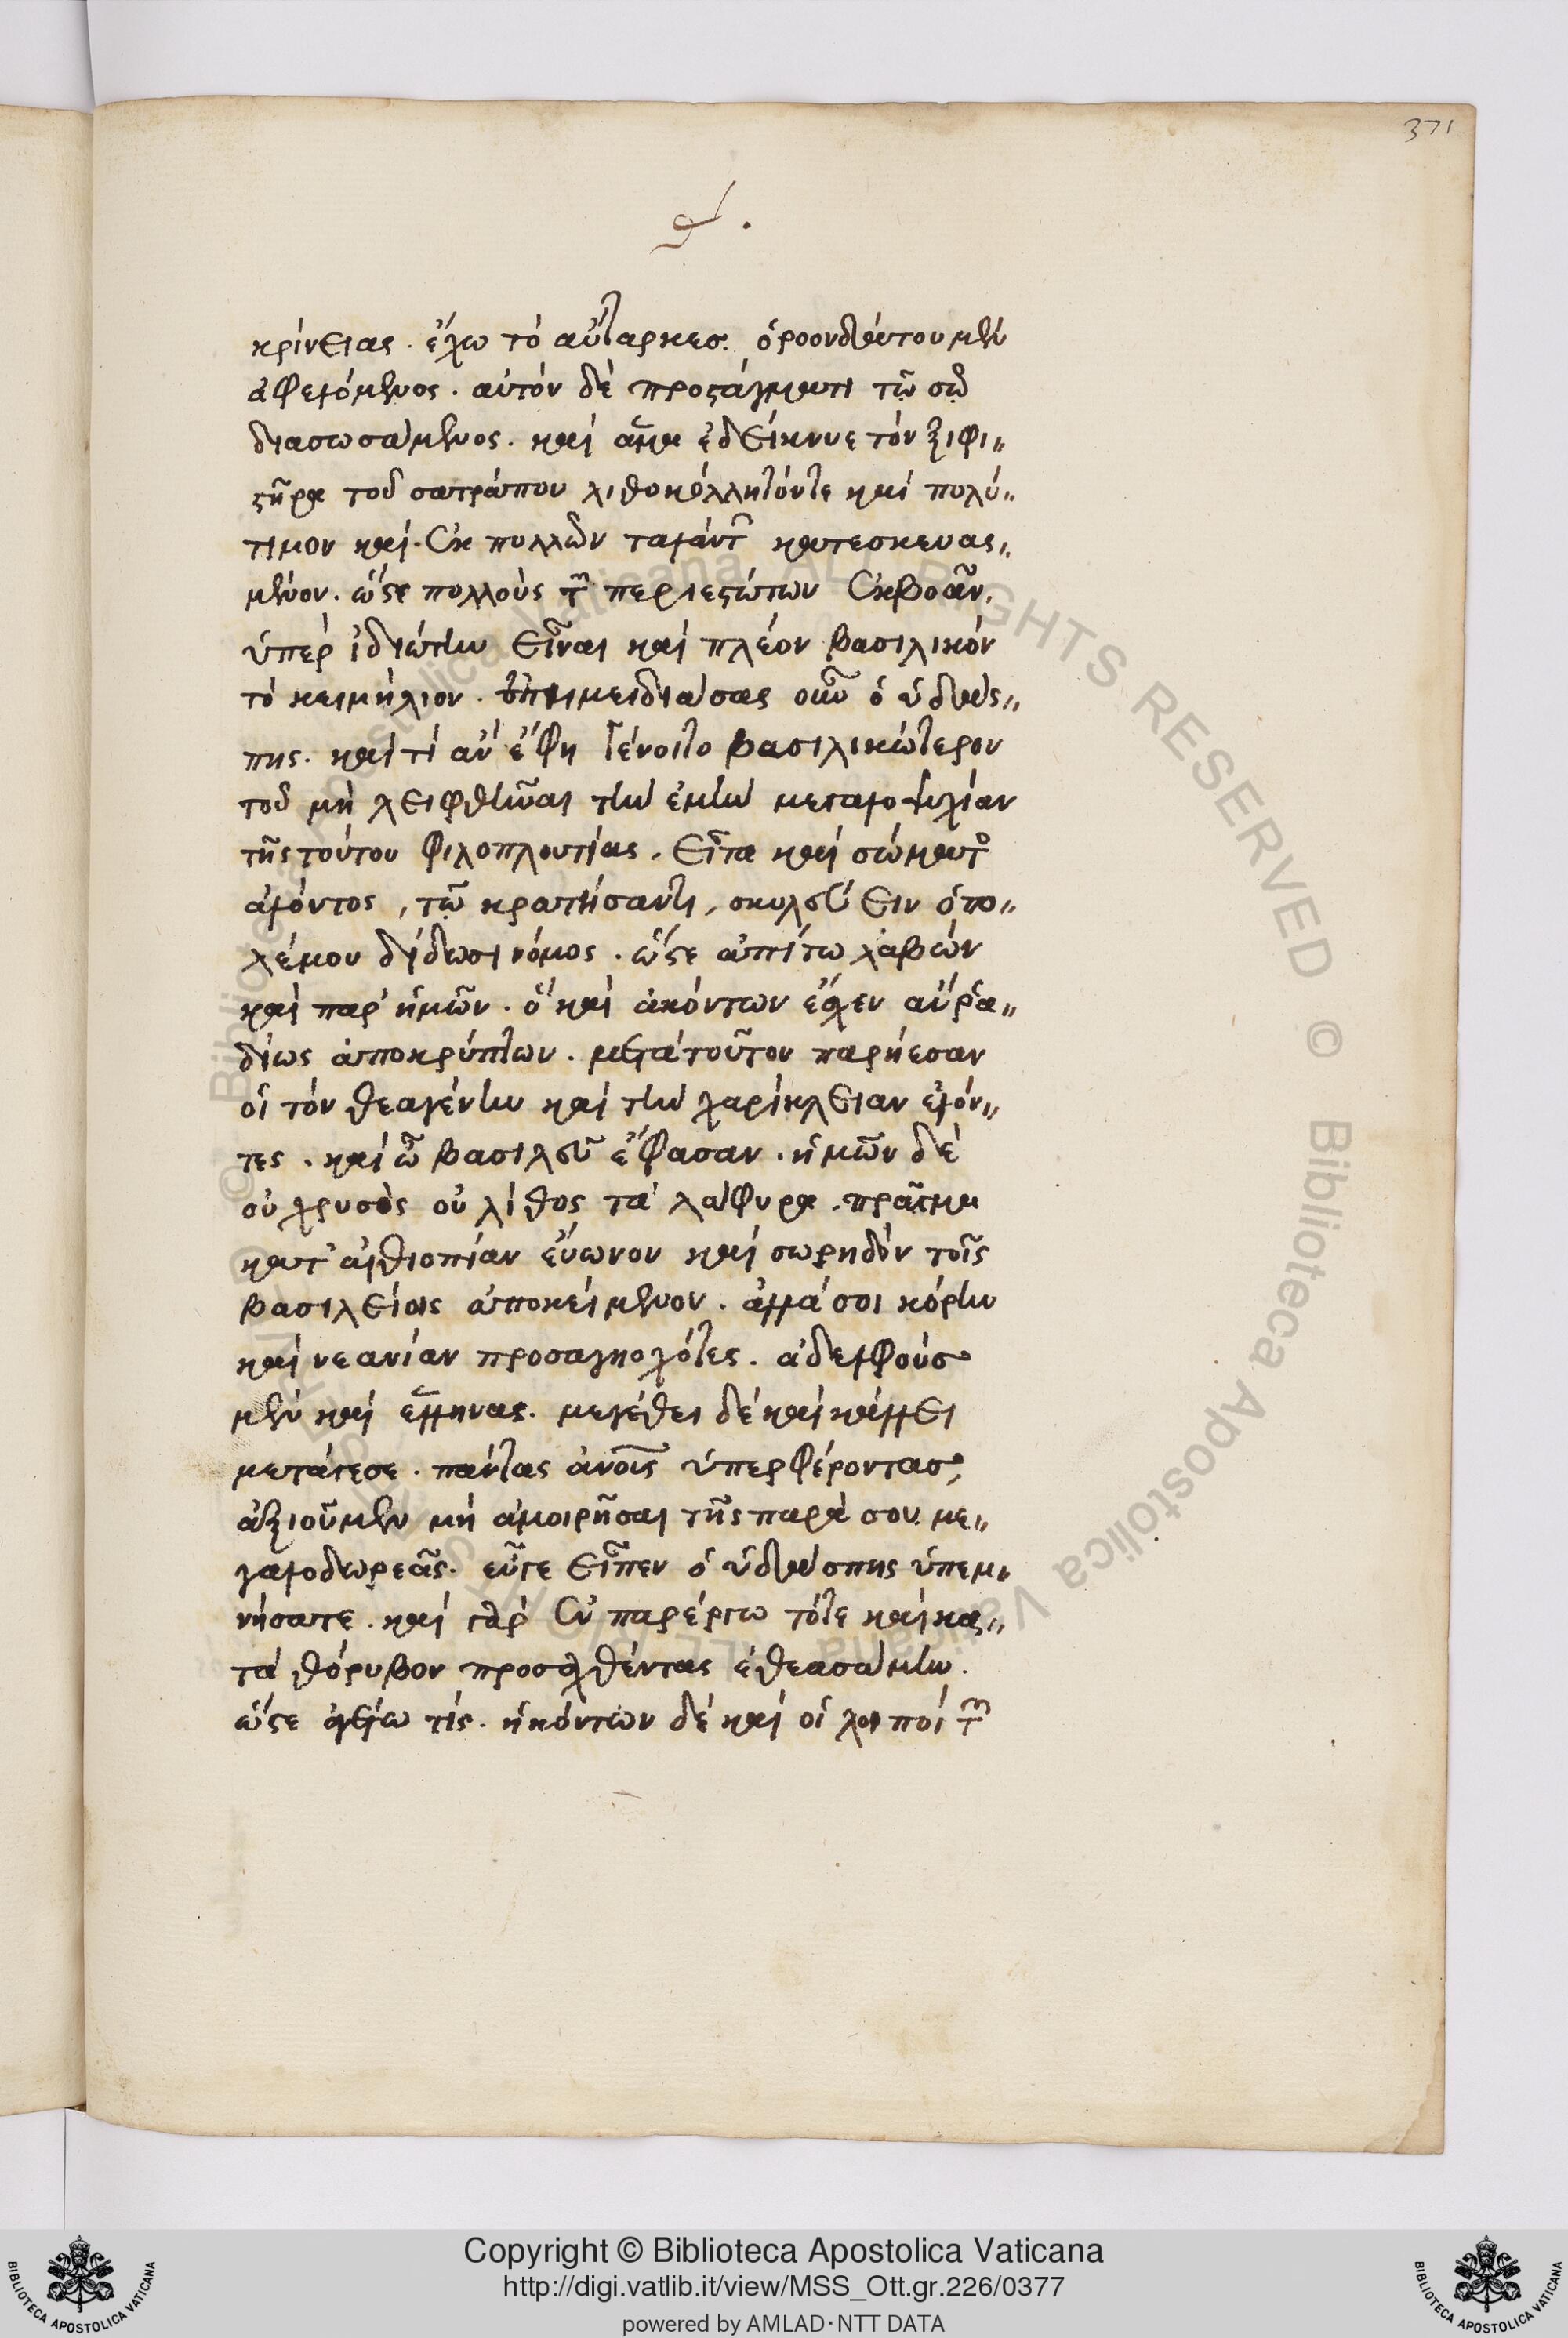 371
θ΄.
κρίνειας. ἔχω τὸ αὔταρκες. ὀροονδάτου μὲν
ἀφελόμενος. αὐτὸν δὲ προστάγματι τῷ σῷ
διασωσάμενος. καὶ ἅμα ἐδείκνυε τὸν ξιφι〃
στῆρα τοῦ σατράπου λιθοκόλλητόντε καὶ πολύ〃
τιμον καὶ. ἐκ πολλῶν ταλάντων κατεσκευασ〃
μένον. ὥστε πολλοὺς τῶν περιεστώτων ἐκβοᾶν.
ὑπὲρ ἰδιώτην εἶναι καὶ πλέον βασιλικὸν
τὸ κειμήλιον. ἐπιμειδιάσας οὖν ὁ ὑδάσ〃
πης. καὶ τί ἂν ἔφη γένοιτο βασιλικώτερον
τοῦ μὴ λειφθῆναι τὴν ἐμὴν μεγαλοψυχίαν
τῆς τούτου φιλοπλουτίας. εἶτα καὶ σώματος
ἁλόντος, τῷ κρατήσαντι, σκυλεύειν ὁ πο〃
λέμου δίδωσι νόμος. ὥστε ἀπίτω λαβὼν
καὶ παρ' ἡμῶν. ὃ καὶ ἀκόντων ἔχεν ἂν ῥα〃
δίως ἀποκρύπτων. μετὰ τοῦτον παρῄεσαν
οἱ τὸν θεαγένην καὶ τὴν χαρίκλειαν ἑλόν〃
τες. καὶ ὦ βασιλεῦ ἔφασαν. ἡμῶν δὲ
οὐ χρυσὸς οὐ λίθος τὰ λάφυρα. πρᾶγμα
κατ' αἰθιοπίαν εὔωνον καὶ σωρηδὸν τοῖς
βασιλείοις ἀποκείμενον. ἀλλά σοι κόρην
καὶ νεανίαν προσαγηοχότες. ἀδελφοὺς
μὲν καὶ ἕλληνας. μεγέθει δὲ καὶ κάλλει
μετά γε σε. πάντας ἀνοις ὑπερφέροντας,
ἀξιοῦμεν μὴ ἀμοιρῆσαι τῆς παρὰ σου με〃
γαλοδωρεᾶς. εὖγε εἶπεν ὁ ὑδάσπης ὑπεμ〃
νήσατε. καὶ γὰρ ἐν παρέργῳ τότε καὶ κα〃
τὰ θόρυβον προσαχθέντας ἐθεασάμην.
ὥστε ἀγέτω τίς. ἡκόντων δὲ καὶ οἱ λοιποὶ τῶν
Copyright © Biblioteca Apostolica Vaticana
http://digi.vatlib.it/view/MSS_Ott.gr.226/0377
powered by AMLAD·NTT DATA
BIBLIOTECA APOSTOLICA VATICANA
BIBLIOTECA APOSTOLICA VATICANA